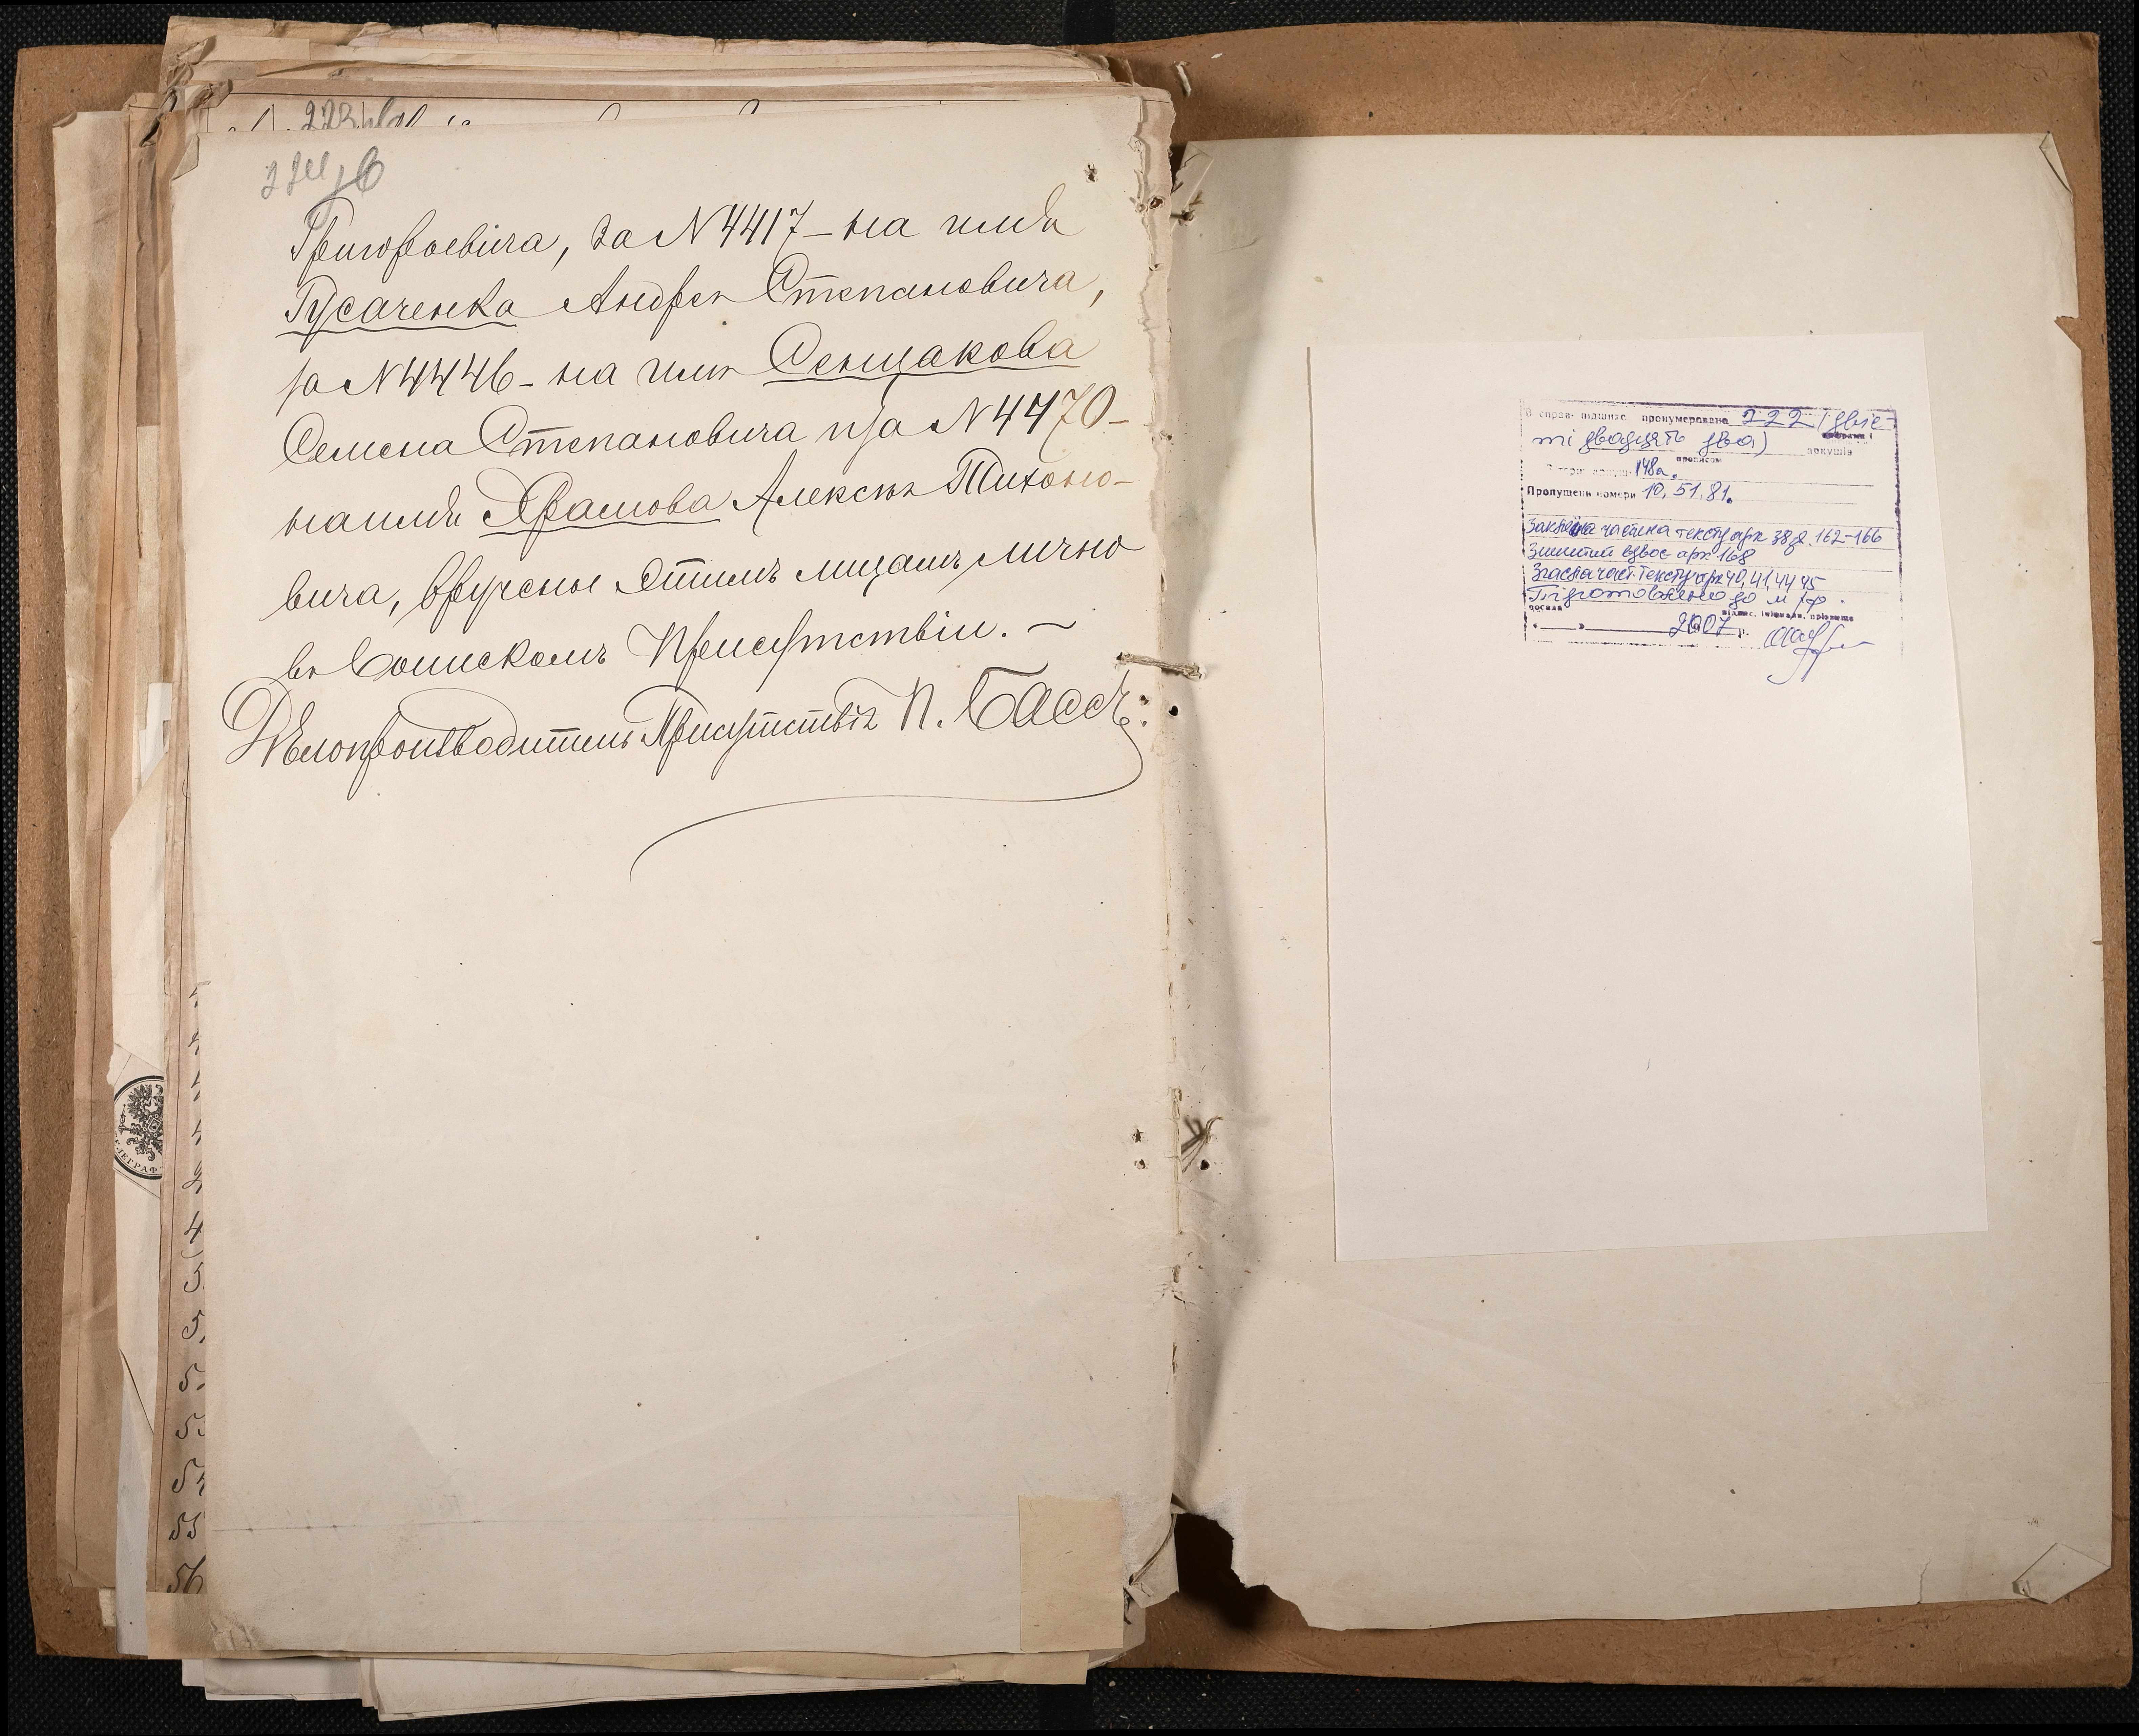 Григорьевича, за N 4417 – на имя
Гусаченка Андрея Степановича,
за N 4446 – на имя Сенщакова
Семена Степановича и за N 4470 –
на имя Храмова Алексѣя Тихоно-
вича, вручены этимъ лицамъ лично
въ Воинскомъ Присутствіи. –
Дѣлопроизводитель Присутствія П. Бассъ.
В справі підшито і пронумеровано 222 (двіс-
ті двадцять два) аркушів
прописом
148а.
Пропущени номери 10, 51, 81.
Заклеєна частина тексту арк 38, 162-166
арк 168
Згасла част. тексту арк 40, 41, 44, 45
Підготовлено до м/ф.
посада підпис, ініціали, прізвище
2007 р.